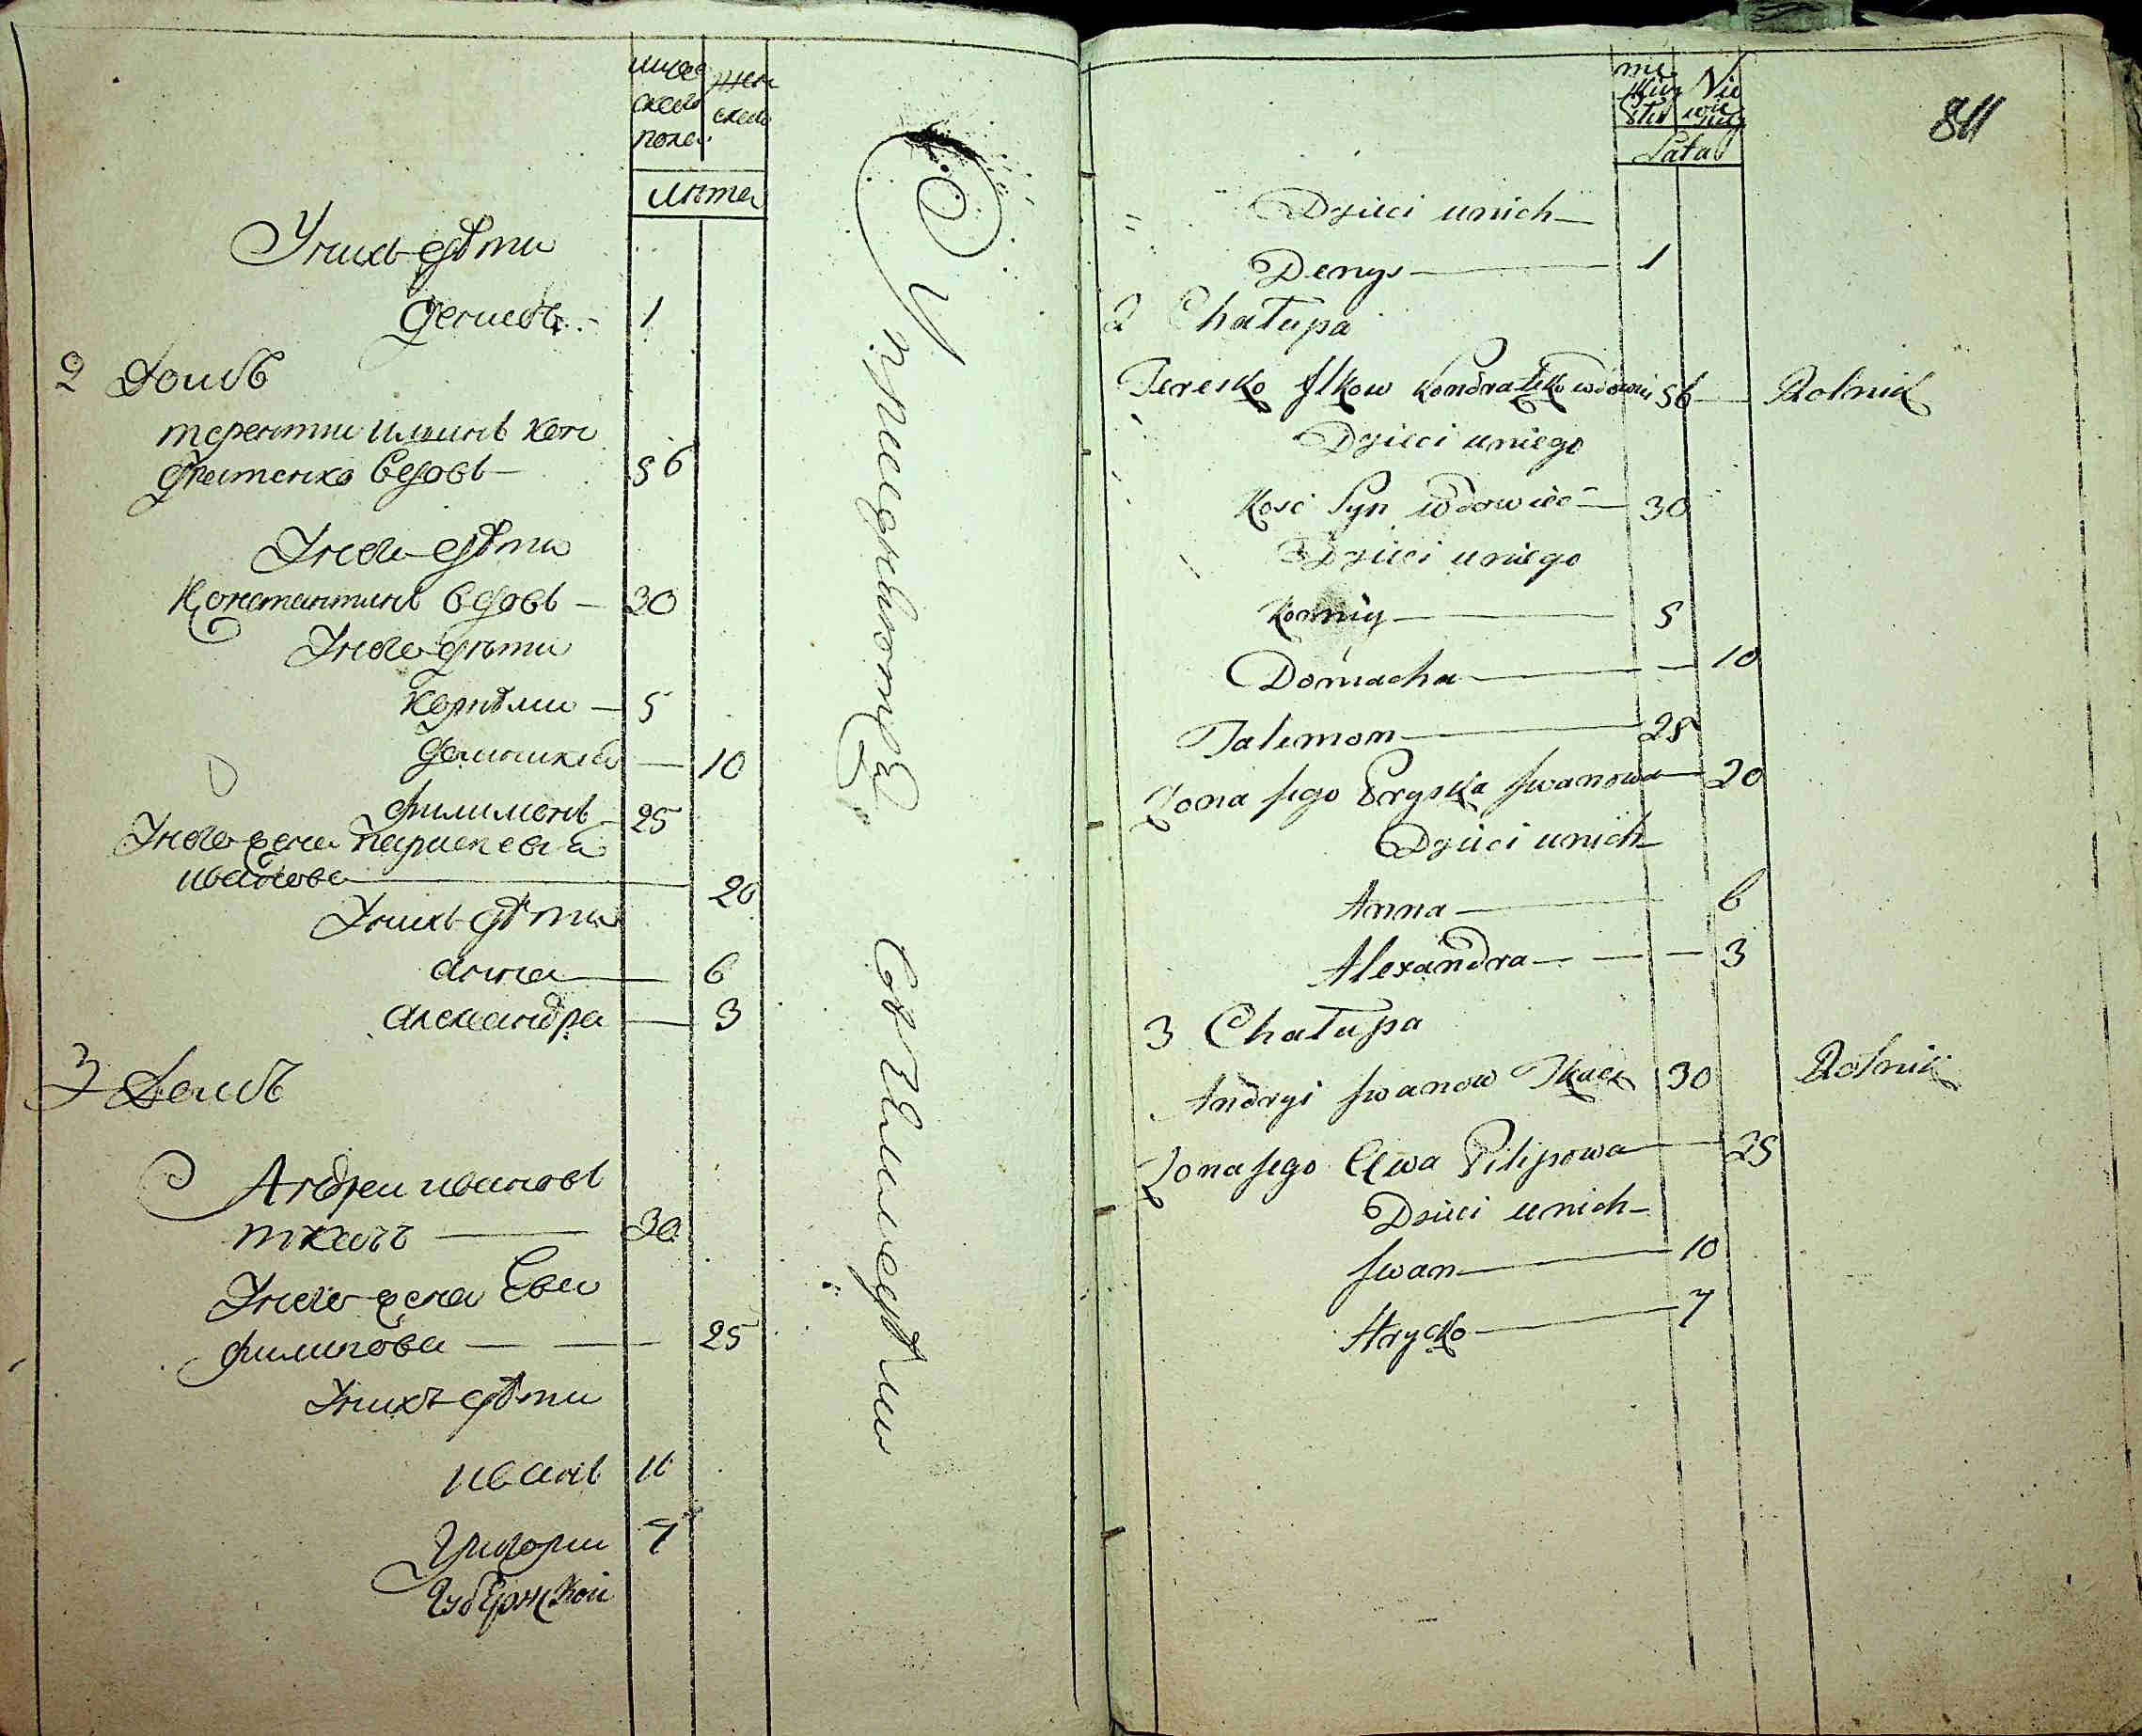 мужеска пола
женска
лѣта
У нихъ дѣти
денисъ 1
2 Домъ
терентии илиинъ кон
дратенко вдовъ 56
У него дѣти
Константинъ вдовъ 30
У него дѣти
корнѣли 5
домникия 10
филимонъ 25
У него жена параскевия
иванова 20
У нихъ дѣти
анна 6
александра 3
3 Домъ
Андреи ивановъ
ткачъ 30
У него жена Ева
филипова 25
У нихъ дѣти
иванъ 10
Григории 7
Губернской
811
me zkiey płci
Nie wie sciey
Lata
Dzieci u nich
Denys 1
2 Chałupa
Teresko Ilkow Kondratko wdowiec 56 Rolnik
Dzieci u niego
Kosc Syn Wdowiec 30
Dzieci u niego
Korniy 5
Domacha 10
Falimon 25
Zona Jego Pryska Jwanowa 20
Dzieci u nich
Anna 6
Alexandra 3
3 Chałupa
Andryi Jwanow Tkacz 30 Rolnik
Zona Jego Ewa Pilipowa 25
Dzieci u nich
Jwan 10
Hrycko 7